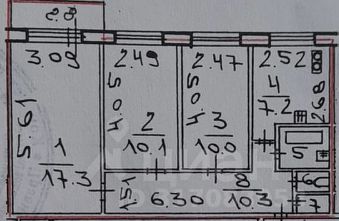 8.8
3.09
2.49
2.47
2.52
5.61
4.05
4.05
2.68
1
17.3
2
10.1
3
10.0
4
7.2
5
6
7
1.51
6.30
8
10.3